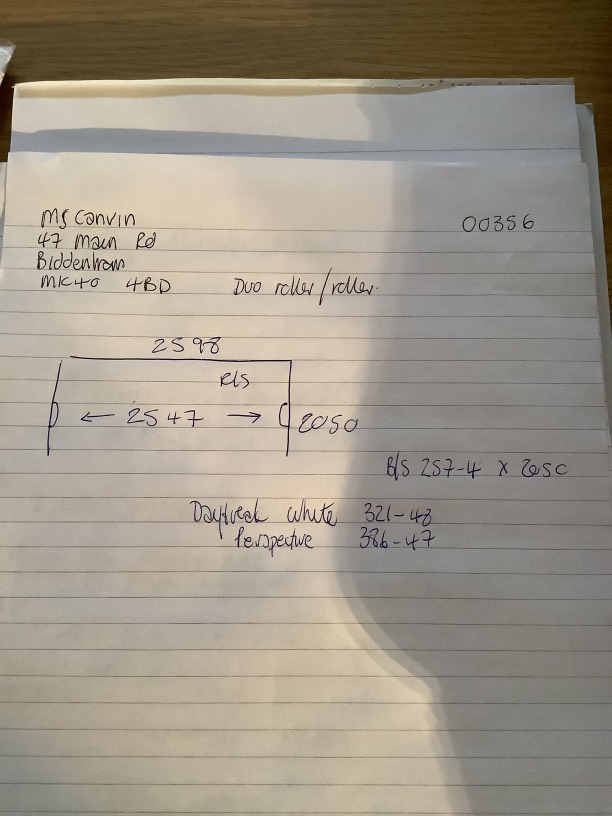 Ms Canvin
00356
47 Main Rd
Biddenham
MK40 4BD
Duo roller/roller.
2598
R/S
← 2547 →
2050
B/S 257-4 x 2050
Daybreak white 321-48
Perspective 386-47